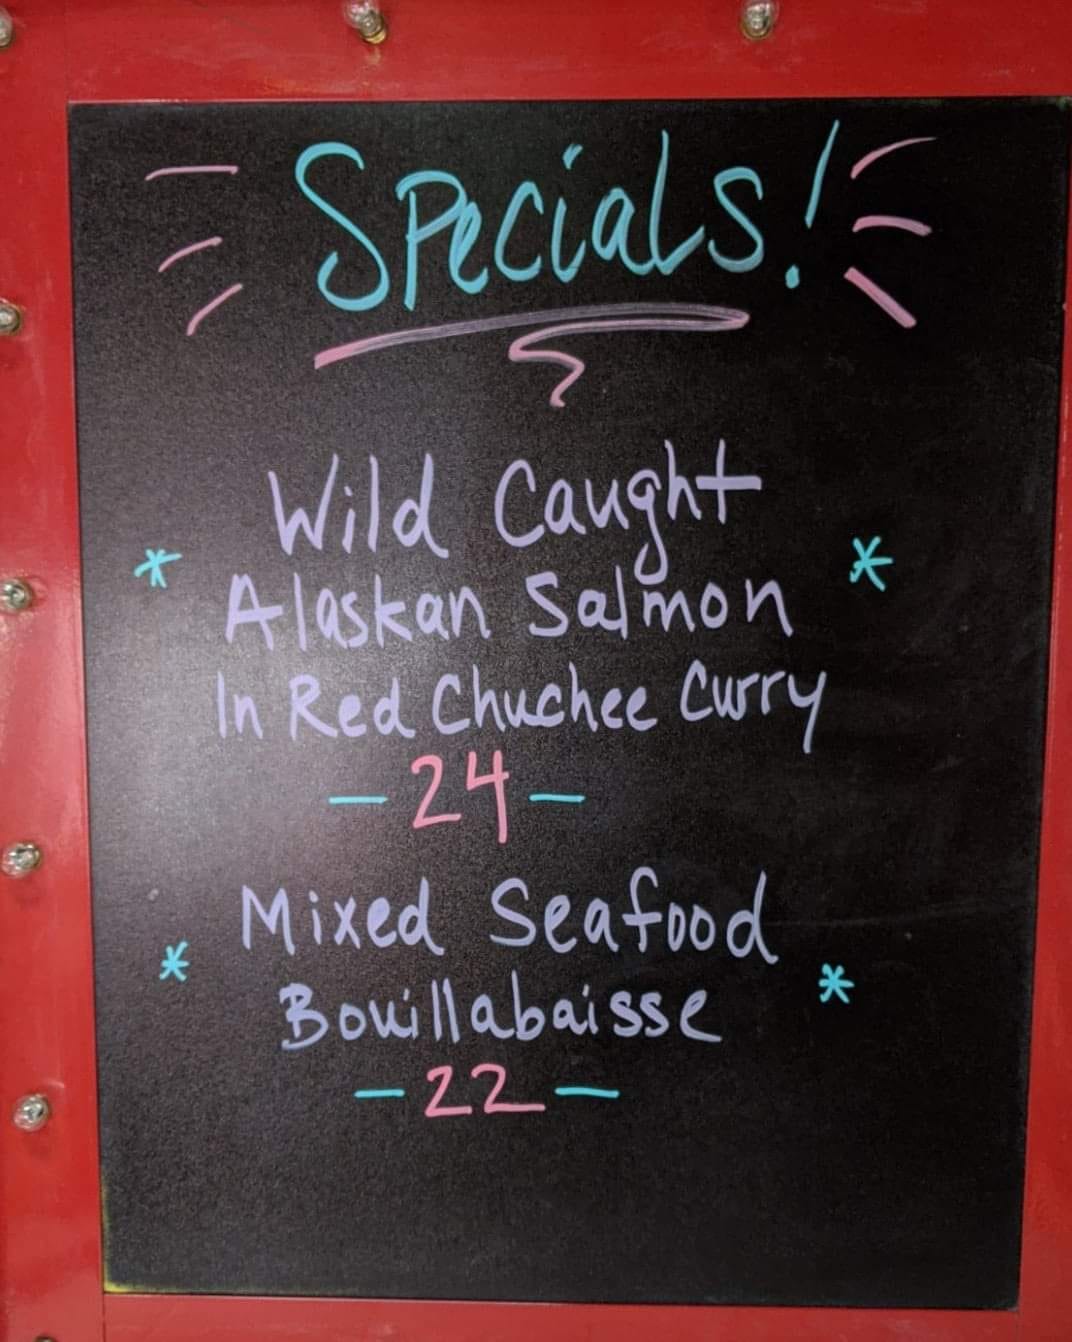 Specials!
Wild Caught
Alaskan Salmon
In Red Chuchee Curry
- 24 -
Mixed Seafood
Bouillabaisse
- 22 -